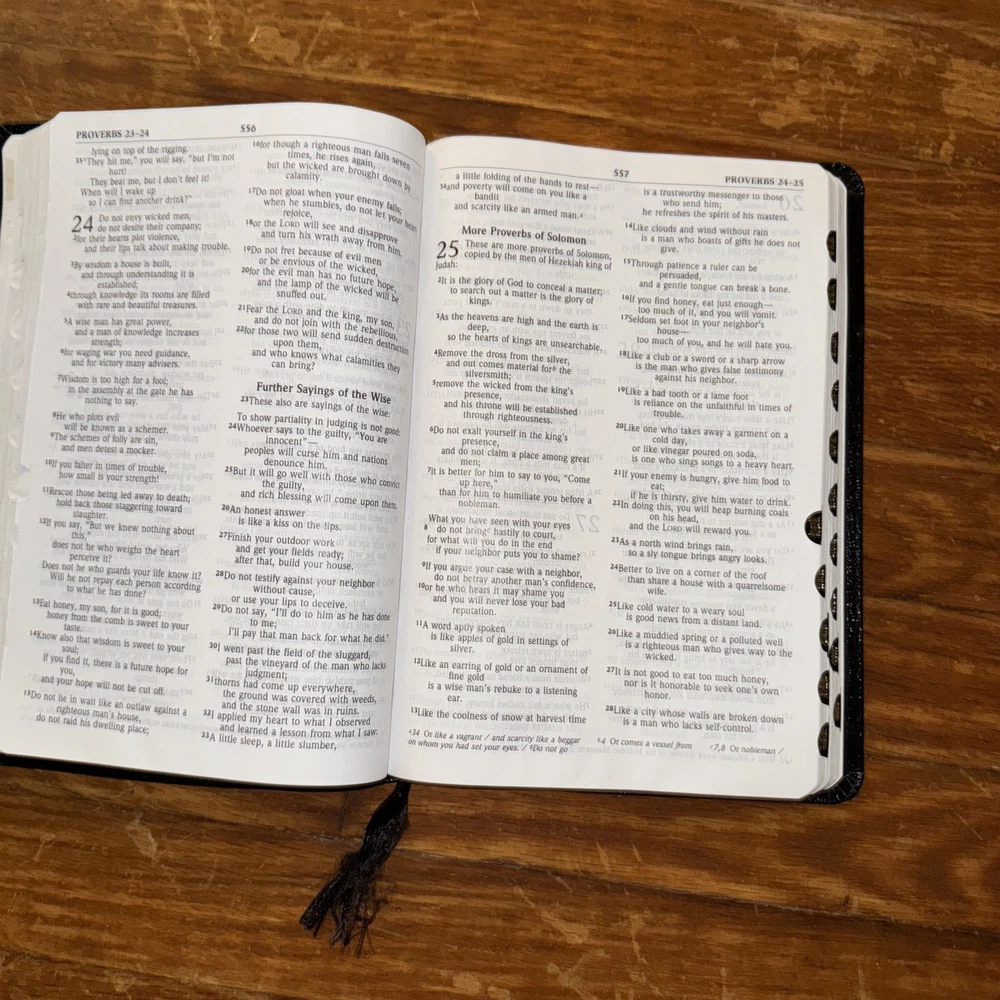 PROVERBS 23-24
556
lying on top of the rigging.
35"They hit me," you will say, "but I'm not
hurt!
They beat me, but I don't feel it!
When will I wake up
so I can find another drink?"
24 Do not envy wicked men,
do not desire their company;
2for their hearts plot violence,
and their lips talk about making trouble.
3By wisdom a house is built,
and through understanding it is
established;
4through knowledge its rooms are filled
with rare and beautiful treasures.
5A wise man has great power,
and a man of knowledge increases
strength;
6for waging war you need guidance,
and for victory many advisers.
7Wisdom is too high for a fool;
in the assembly at the gate he has
nothing to say.
8He who plots evil
will be known as a schemer.
9The schemes of folly are sin,
and men detest a mocker.
10If you falter in times of trouble,
how small is your strength!
11Rescue those being led away to death;
hold back those staggering toward
slaughter.
12If you say, "But we knew nothing about
this,"
does not he who weighs the heart
perceive it?
Does not he who guards your life know it?
Will he not repay each person according
to what he has done?
13Eat honey, my son, for it is good;
honey from the comb is sweet to your
taste.
14Know also that wisdom is sweet to your
soul;
if you find it, there is a future hope for
you,
and your hope will not be cut off.
15Do not lie in wait like an outlaw against a
righteous man's house,
do not raid his dwelling place;
16for though a righteous man falls seven
times, he rises again,
but the wicked are brought down by
calamity.
17Do not gloat when your enemy falls;
when he stumbles, do not let your heart
rejoice,
18or the LORD will see and disapprove
and turn his wrath away from him.
19Do not fret because of evil men
or be envious of the wicked,
20for the evil man has no future hope,
and the lamp of the wicked will be
snuffed out.
21Fear the LORD and the king, my son,
and do not join with the rebellious,
22for those two will send sudden destruction
upon them,
and who knows what calamities they
can bring?
Further Sayings of the Wise
23These also are sayings of the wise:
To show partiality in judging is not good:
24Whoever says to the guilty, "You are
innocent"—
peoples will curse him and nations
denounce him.
25But it will go well with those who convict
the guilty,
and rich blessing will come upon them.
26An honest answer
is like a kiss on the lips.
27Finish your outdoor work
and get your fields ready;
after that, build your house.
28Do not testify against your neighbor
without cause,
or use your lips to deceive.
29Do not say, "I'll do to him as he has done
to me;
I'll pay that man back for what he did."
30I went past the field of the sluggard,
past the vineyard of the man who lacks
judgment;
31thorns had come up everywhere,
the ground was covered with weeds,
and the stone wall was in ruins.
32I applied my heart to what I observed
and learned a lesson from what I saw:
33A little sleep, a little slumber,
557
PROVERBS 24-25
a little folding of the hands to rest—
34and poverty will come on you like a
bandit
and scarcity like an armed man.a
More Proverbs of Solomon
25 These are more proverbs of Solomon,
copied by the men of Hezekiah king of
Judah:
2It is the glory of God to conceal a matter;
to search out a matter is the glory of
kings.
3As the heavens are high and the earth is
deep,
so the hearts of kings are unsearchable.
4Remove the dross from the silver,
and out comes material forb the
silversmith;
5remove the wicked from the king's
presence,
and his throne will be established
through righteousness.
6Do not exalt yourself in the king's
presence,
and do not claim a place among great
men;
7it is better for him to say to you, "Come
up here,"
than for him to humiliate you before a
nobleman.
What you have seen with your eyes
8 do not bringc hastily to court,
for what will you do in the end
if your neighbor puts you to shame?
9If you argue your case with a neighbor,
do not betray another man's confidence,
10or he who hears it may shame you
and you will never lose your bad
reputation.
11A word aptly spoken
is like apples of gold in settings of
silver.
12Like an earring of gold or an ornament of
fine gold
is a wise man's rebuke to a listening
ear.
13Like the coolness of snow at harvest time
is a trustworthy messenger to those
who send him;
he refreshes the spirit of his masters.
14Like clouds and wind without rain
is a man who boasts of gifts he does not
give.
15Through patience a ruler can be
persuaded,
and a gentle tongue can break a bone.
16If you find honey, eat just enough—
too much of it, and you will vomit.
17Seldom set foot in your neighbor's
house—
too much of you, and he will hate you.
18Like a club or a sword or a sharp arrow
is the man who gives false testimony
against his neighbor.
19Like a bad tooth or a lame foot
is reliance on the unfaithful in times of
trouble.
20Like one who takes away a garment on a
cold day,
or like vinegar poured on soda,
is one who sings songs to a heavy heart.
21If your enemy is hungry, give him food to
eat;
if he is thirsty, give him water to drink.
22In doing this, you will heap burning coals
on his head,
and the LORD will reward you.
23As a north wind brings rain,
so a sly tongue brings angry looks.
24Better to live on a corner of the roof
than share a house with a quarrelsome
wife.
25Like cold water to a weary soul
is good news from a distant land.
26Like a muddied spring or a polluted well
is a righteous man who gives way to the
wicked.
27It is not good to eat too much honey,
nor is it honorable to seek one's own
honor.
28Like a city whose walls are broken down
is a man who lacks self-control.
a34 Or like a vagrant / and scarcity like a beggar b4 Or comes a vessel from c7,8 Or nobleman /
on whom you had set your eyes. / 8Do not go